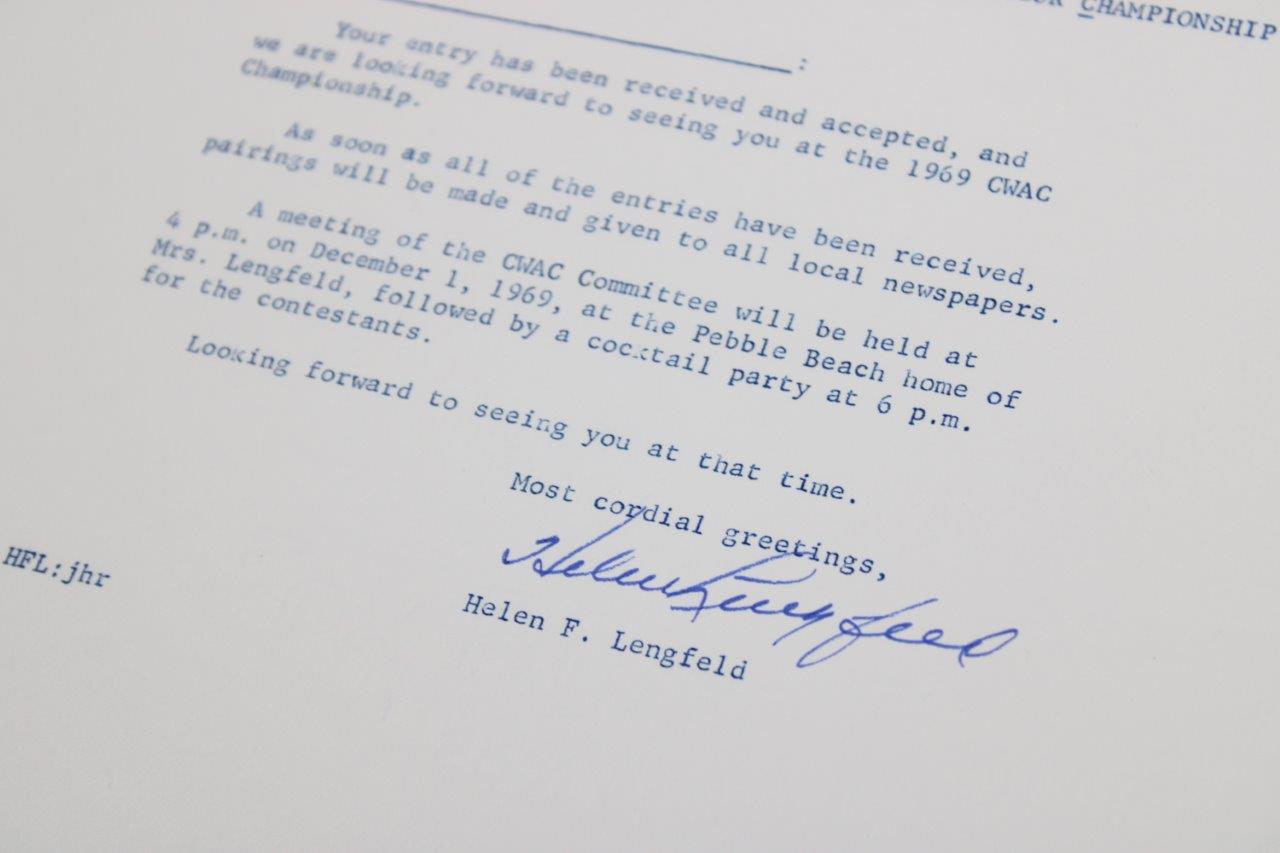 CHAMPIONSHIP
:
Your entry has been received and accepted, and
we are looking forward to seeing you at the 1969 CWAC
Championship.
As soon as all of the entries have been received,
pairings will be made and given to all local newspapers.
A meeting of the CWAC Committee will be held at
4 p.m. on December 1, 1969, at the Pebble Beach home of
Mrs. Lengfeld, followed by a cocktail party at 6 p.m.
for the contestants.
Looking forward to seeing you at that time.
Most cordial greetings,
Helen Lengfeld
Helen F. Lengfeld
HFL:jhr